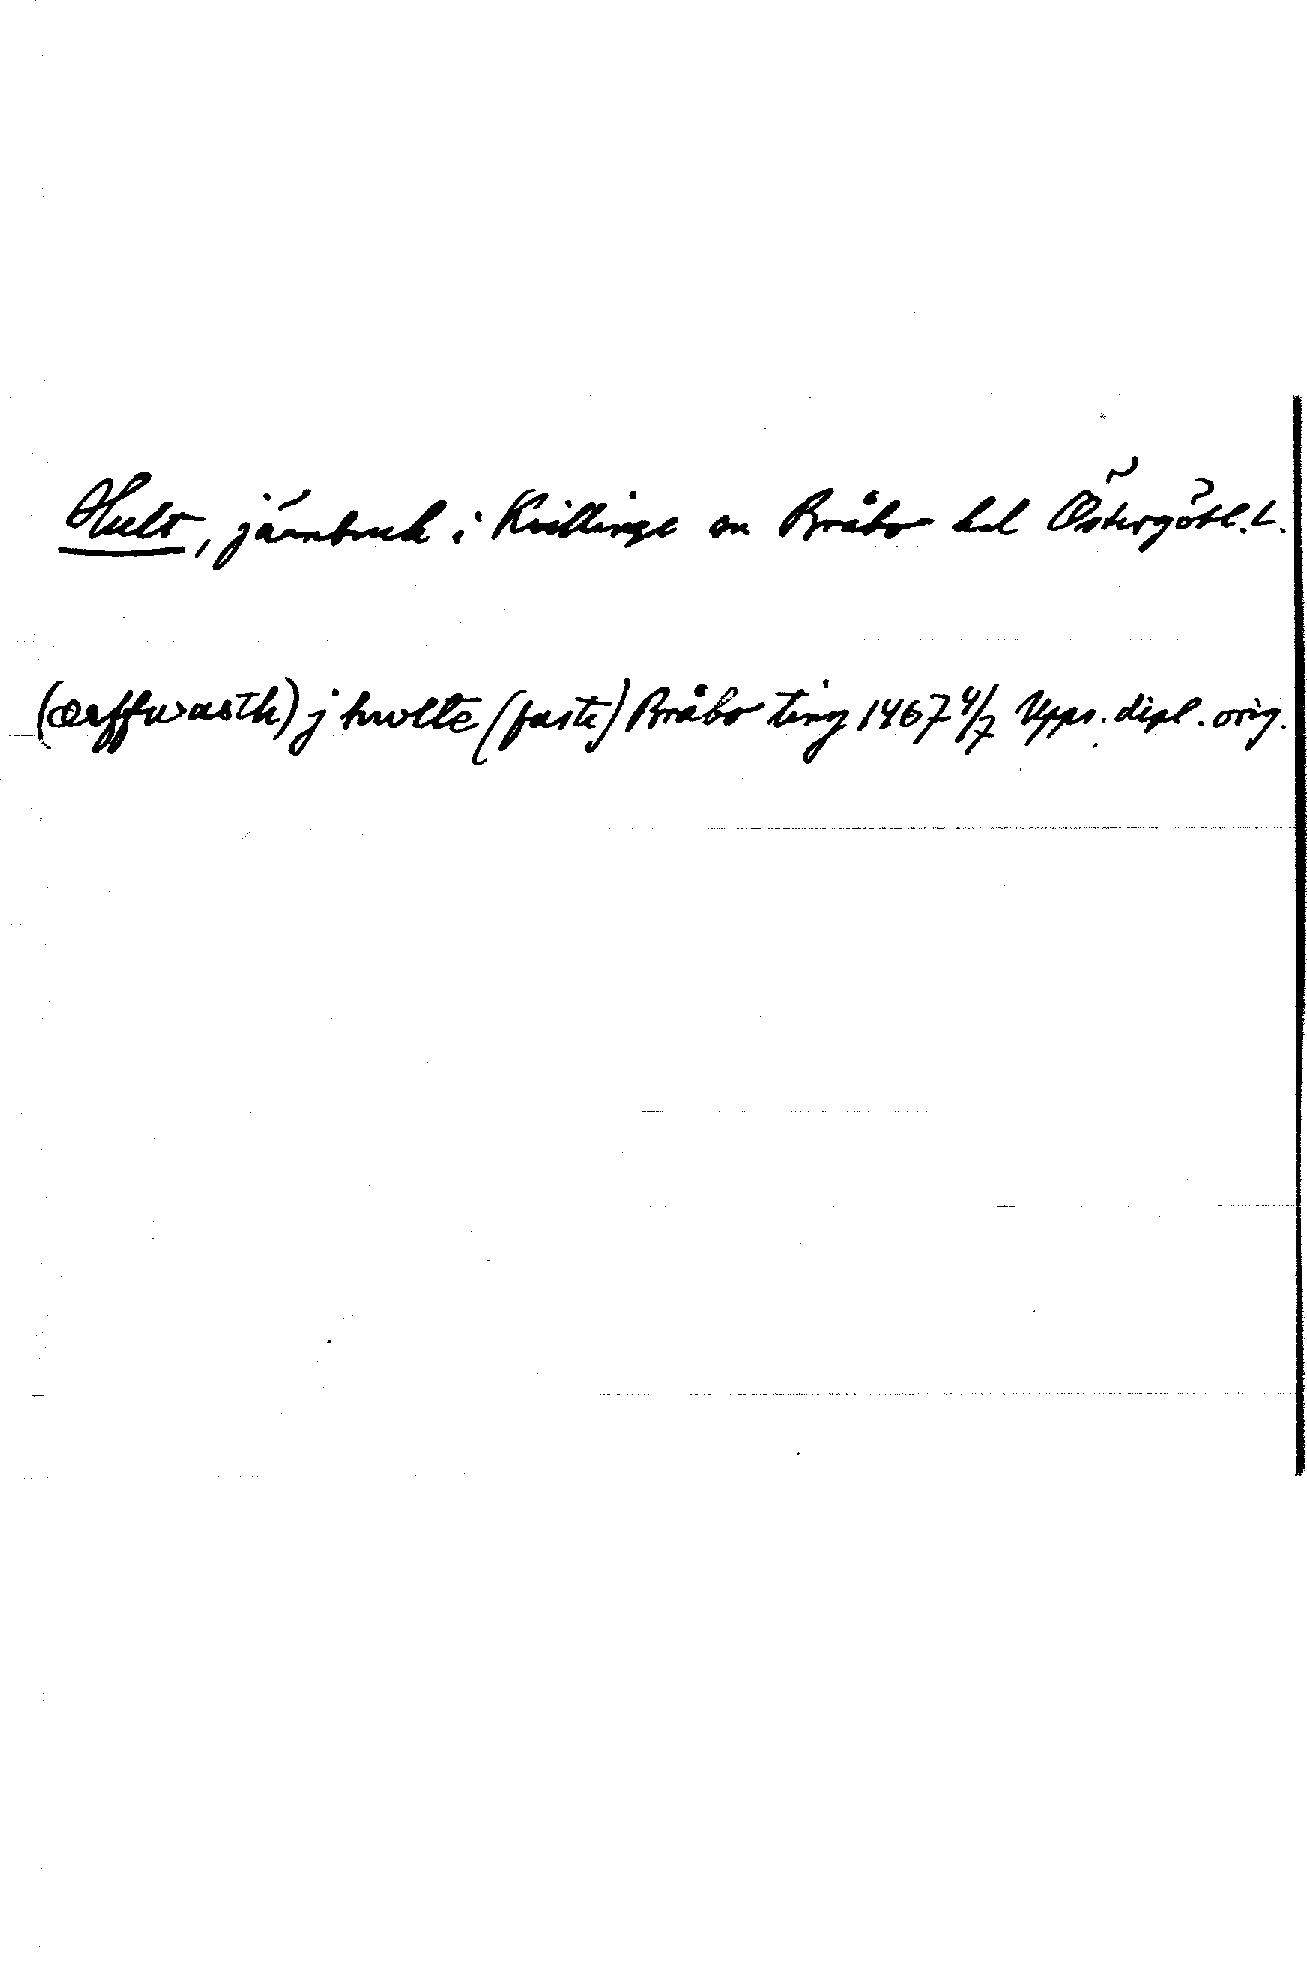 Hult, järnbruk i Kvillinge sn Bråbo hd Östergötl. L.
(ærffwasth) j hwlte (faste) Bråbo ting 1467 4/7 Upps. dipl. orig.